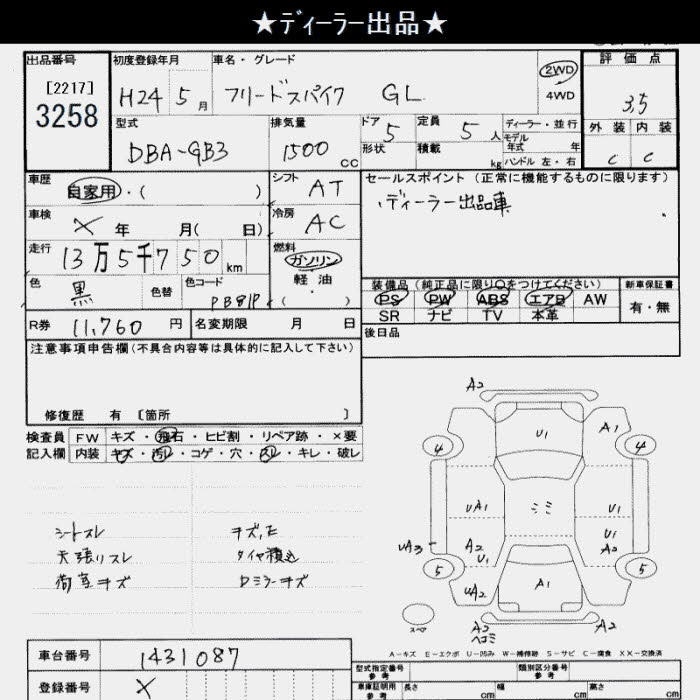 ★ディーラー出品★
出品番号
[2217]
3258
初度登録年月
H24 5月
車名・グレード
フリードスパイク GL
2WD
4WD
評価点
3.5
外装 内装
C C
型式
DBA-GB3
排気量
1500 cc
ドア 5
形状
定員 5人
積載 kg
ディーラー・並行
モデル年式 年
ハンドル 左・右
車歴
自家用・( )
シフト
AT
セールスポイント(正常に機能するものに限ります)
ディーラー出品車
車検
× 年 月( 日)
冷房
AC
走行
13万5千750km
燃料
ガソリン
軽油
( )
色
黒
色替
色コード
PB81P
装備品(純正品に限り○をつけてください)
PS PW ABS エアB AW
SR ナビ TV 本革
新車保証書
有・無
R券 11,760円
名変期限 月 日
後日品
注意事項申告欄(不具合内容等は具体的に記入して下さい)
修復歴 有 [箇所 ]
検査員記入欄
FW キズ・飛石・ヒビ割・リペア跡・×要
内装 キズ・汚レ・コゲ・穴・スレ・キレ・破レ
シートスレ
天張りスレ
荷室キズ
タイヤ積込
Dミラーキズ
A2
U1
A1
4
4
UA1
ミミ
U1
UA3
A2
U1
U1
A2
5
5
UA2
A1
スペア
A2
ヘコミ
A2
A-キズ E-エクボ U-凹み W-補修跡 S-サビ C-腐食 XX-交換済
車台番号 1431087
登録番号 ×
型式指定番号
参考
類別区分番号
参考
車庫証明用
参考
長さ cm
幅 cm
高さ cm